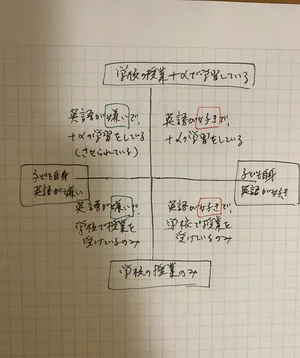 学校の授業+αで学習している
英語が嫌いで、
+αの学習をしている
(させられている)
英語が好きで、
+αで学習をしている
子ども自身
英語が嫌い
子ども自身
英語が好き
英語が嫌いで、
学校で授業を
受けているのみ
英語が好きで、
学校で授業を
受けているのみ
学校の授業のみ